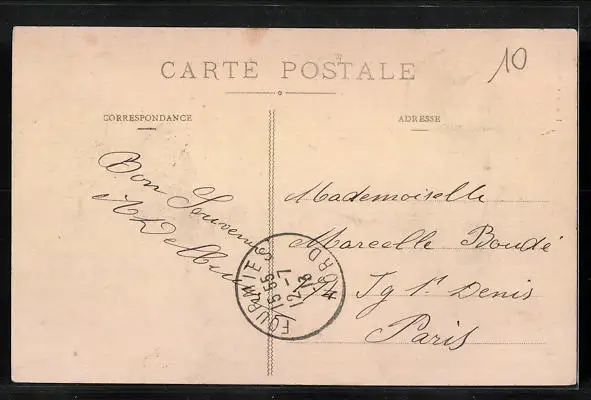 CARTE POSTALE
10
CORRESPONDANCE
ADRESSE
Bon Souvenir
Mademoiselle
Marcelle Boudé
Fg St Denis
Paris
FOURMIES
15 55
12-7
13
NORD